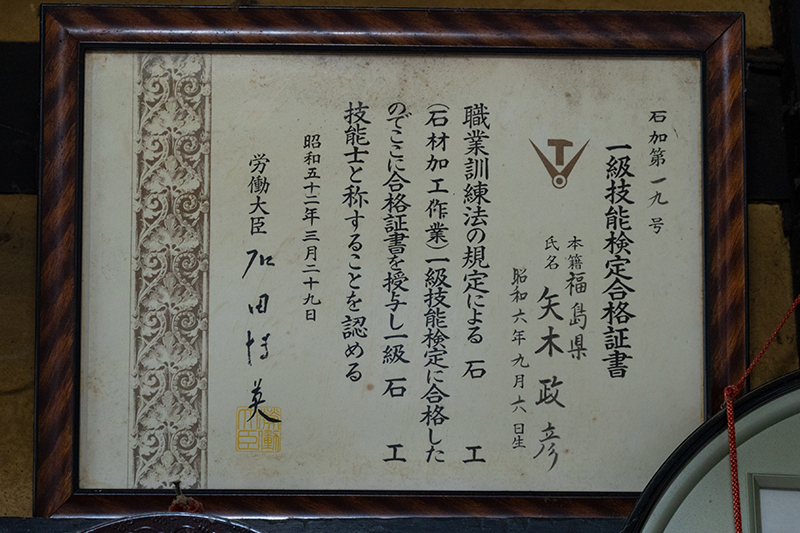 石加第一九号
一級技能検定合格証書
本籍 福島県
氏名 矢木政彦
昭和六年九月六日生
職業訓練法の規定による 石工
(石材加工作業)一級技能検定に合格した
のでここに合格証書を授与し一級 石工
技能士と称することを認める
昭和五十二年三月二十九日
労働大臣 石田博英
労働大臣